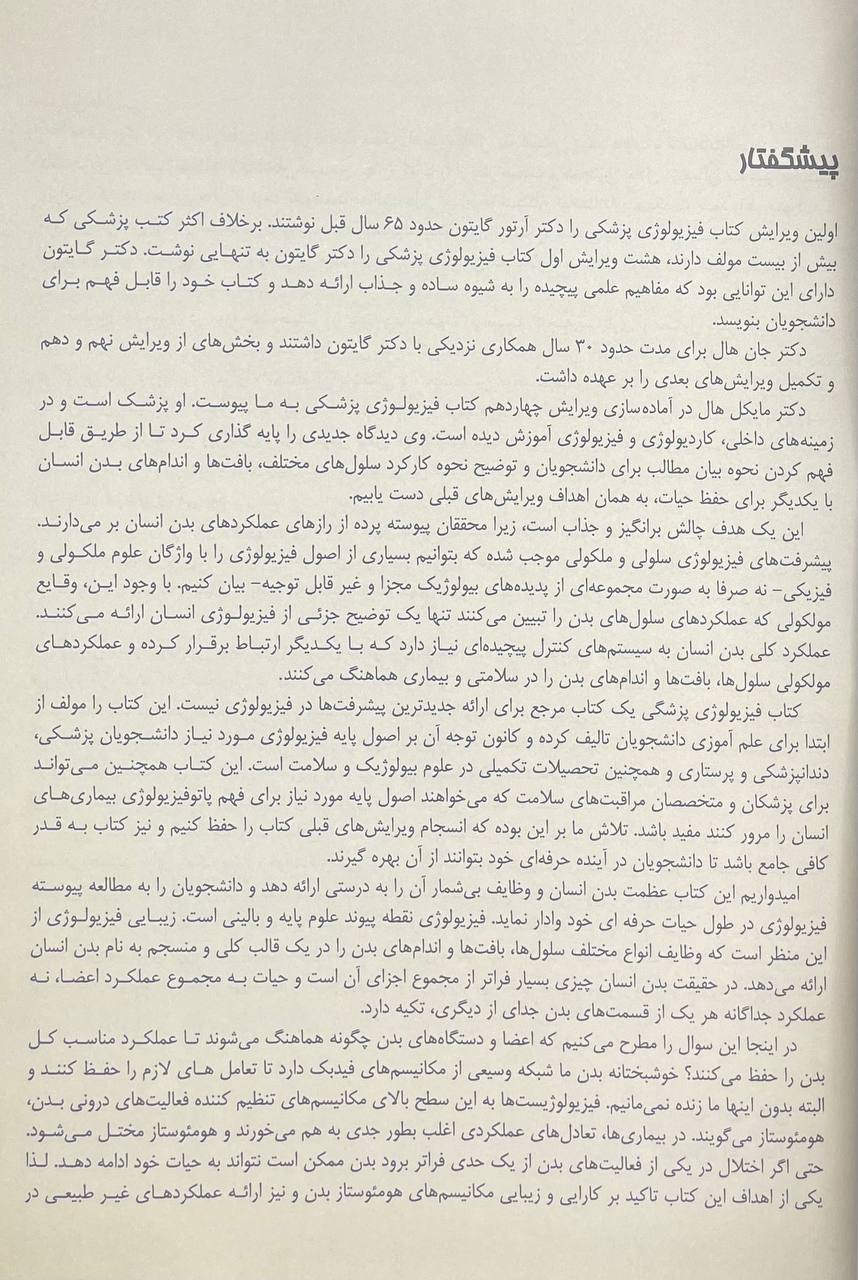 پیشگفتار
اولین ویرایش کتاب فیزیولوژی پزشکی را دکتر آرتور گایتون حدود ۶۵ سال قبل نوشتند. برخلاف اکثر کتب پزشکی که
بیش از بیست مولف دارند، هشت ویرایش اول کتاب فیزیولوژی پزشکی را دکتر گایتون به تنهایی نوشت. دکتر گایتون
دارای این توانایی بود که مفاهیم علمی پیچیده را به شیوه ساده و جذاب ارائه دهد و کتاب خود را قابل فهم برای
دانشجویان بنویسد.
دکتر جان هال برای مدت حدود ۳۰ سال همکاری نزدیکی با دکتر گایتون داشتند و بخش‌های از ویرایش نهم و دهم
و تکمیل ویرایش‌های بعدی را بر عهده داشت.
دکتر مایکل هال در آماده‌سازی ویرایش چهاردهم کتاب فیزیولوژی پزشکی به ما پیوست. او پزشک است و در
زمینه‌های داخلی، کاردیولوژی و فیزیولوژی آموزش دیده است. وی دیدگاه جدیدی را پایه گذاری کرد تا از طریق قابل
فهم کردن نحوه بیان مطالب برای دانشجویان و توضیح نحوه کارکرد سلول‌های مختلف، بافت‌ها و اندام‌های بدن انسان
با یکدیگر برای حفظ حیات، به همان اهداف ویرایش‌های قبلی دست یابیم.
این یک هدف چالش برانگیز و جذاب است، زیرا محققان پیوسته پرده از رازهای عملکردهای بدن انسان بر می‌دارند.
پیشرفت‌های فیزیولوژی سلولی و ملکولی موجب شده که بتوانیم بسیاری از اصول فیزیولوژی را با واژگان علوم ملکولی و
فیزیکی- نه صرفا به صورت مجموعه‌ای از پدیده‌های بیولوژیک مجزا و غیر قابل توجیه- بیان کنیم. با وجود این، وقایع
مولکولی که عملکردهای سلول‌های بدن را تبیین می‌کنند تنها یک توضیح جزئی از فیزیولوژی انسان ارائه می‌کنند.
عملکرد کلی بدن انسان به سیستم‌های کنترل پیچیده‌ای نیاز دارد که با یکدیگر ارتباط برقرار کرده و عملکردهای
مولکولی سلول‌ها، بافت‌ها و اندام‌های بدن را در سلامتی و بیماری هماهنگ می‌کنند.
کتاب فیزیولوژی پزشگی یک کتاب مرجع برای ارائه جدیدترین پیشرفت‌ها در فیزیولوژی نیست. این کتاب را مولف از
ابتدا برای علم آموزی دانشجویان تالیف کرده و کانون توجه آن بر اصول پایه فیزیولوژی مورد نیاز دانشجویان پزشکی،
دندانپزشکی و پرستاری و همچنین تحصیلات تکمیلی در علوم بیولوژیک و سلامت است. این کتاب همچنین می‌تواند
برای پزشکان و متخصصان مراقبت‌های سلامت که می‌خواهند اصول پایه مورد نیاز برای فهم پاتوفیزیولوژی بیماری‌های
انسان را مرور کنند مفید باشد. تلاش ما بر این بوده که انسجام ویرایش‌های قبلی کتاب را حفظ کنیم و نیز کتاب به قدر
کافی جامع باشد تا دانشجویان در آینده حرفه‌ای خود بتوانند از آن بهره گیرند.
امیدواریم این کتاب عظمت بدن انسان و وظایف بی‌شمار آن را به درستی ارائه دهد و دانشجویان را به مطالعه پیوسته
فیزیولوژی در طول حیات حرفه ای خود وادار نماید. فیزیولوژی نقطه پیوند علوم پایه و بالینی است. زیبایی فیزیولوژی از
این منظر است که وظایف انواع مختلف سلول‌ها، بافت‌ها و اندام‌های بدن را در یک قالب کلی و منسجم به نام بدن انسان
ارائه می‌دهد. در حقیقت بدن انسان چیزی بسیار فراتر از مجموع اجزای آن است و حیات به مجموع عملکرد اعضا، نه
عملکرد جداگانه هر یک از قسمت‌های بدن جدای از دیگری، تکیه دارد.
در اینجا این سوال را مطرح می‌کنیم که اعضا و دستگاه‌های بدن چگونه هماهنگ می‌شوند تا عملکرد مناسب کل
بدن را حفظ می‌کنند؟ خوشبختانه بدن ما شبکه وسیعی از مکانیسم‌های فیدبک دارد تا تعامل های لازم را حفظ کنند و
البته بدون اینها ما زنده نمی‌مانیم. فیزیولوژیست‌ها به این سطح بالای مکانیسم‌های تنظیم کننده فعالیت‌های درونی بدن،
هومئوستاز می‌گویند. در بیماری‌ها، تعادل‌های عملکردی اغلب بطور جدی به هم می‌خورند و هومئوستاز مختل می‌شود.
حتی اگر اختلال در یکی از فعالیت‌های بدن از یک حدی فراتر برود بدن ممکن است نتواند به حیات خود ادامه دهد. لذا
یکی از اهداف این کتاب تاکید بر کارایی و زیبایی مکانیسم‌های هومئوستاز بدن و نیز ارائه عملکردهای غیر طبیعی در